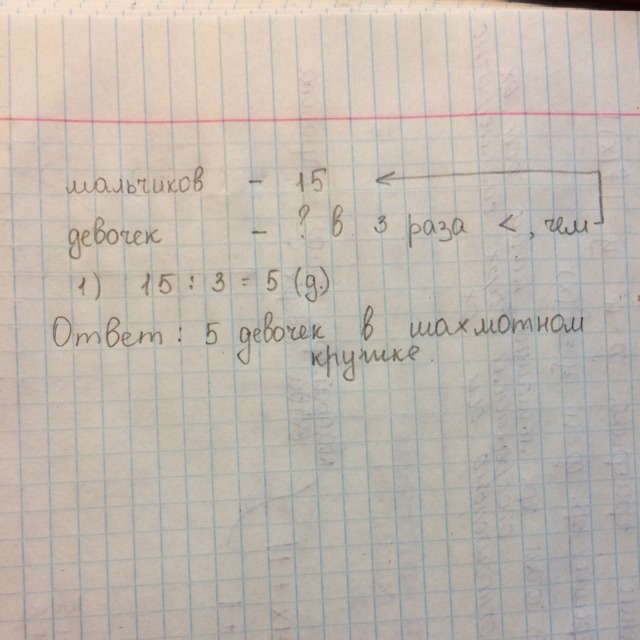 мальчиков - 15
девочек - ? в 3 раза <, чем
1) 15 : 3 = 5 (д)
Ответ: 5 девочек в шахмотном
кружке.